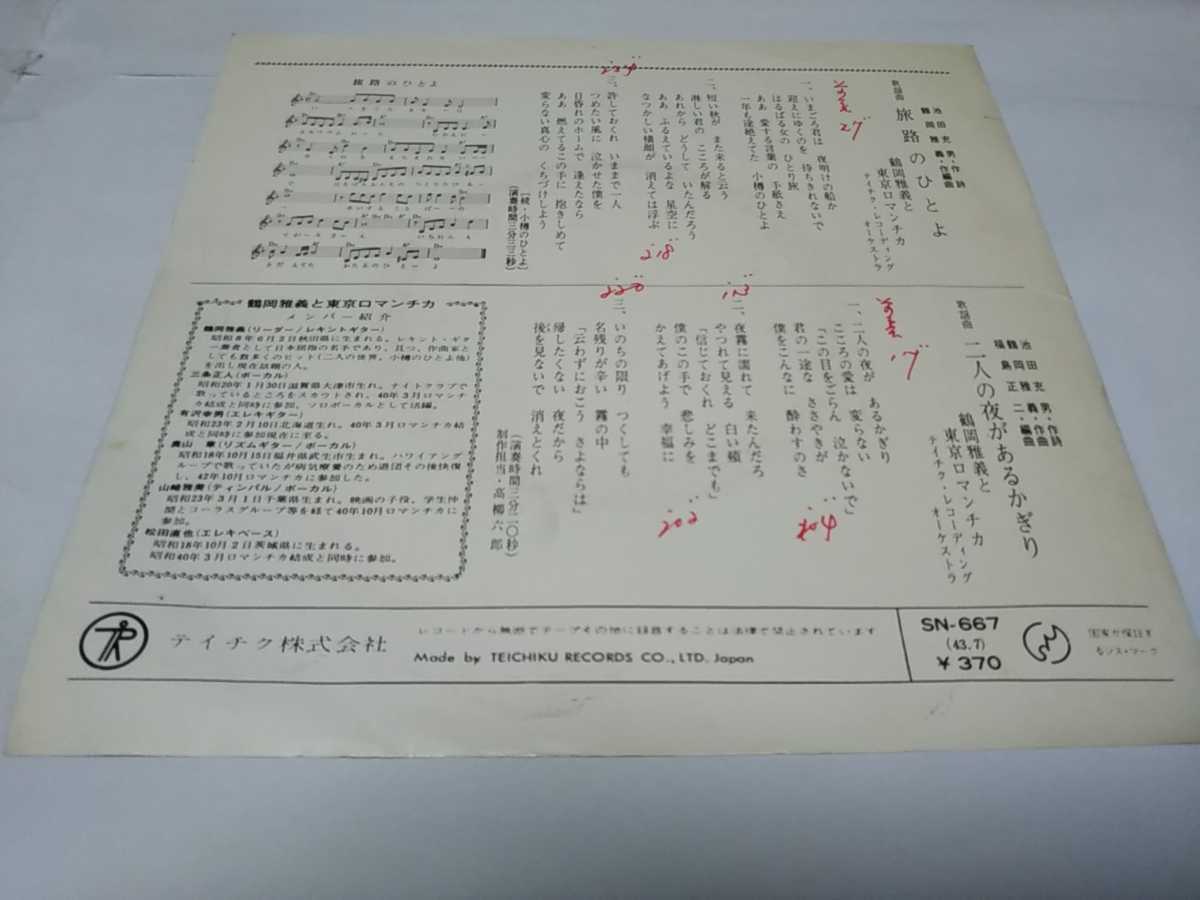 旅路のひとよ
歌謡曲 旅路のひとよ
池田充男・作詩
鶴岡雅義・作編曲
鶴岡雅義と
東京ロマンチカ
テイチク・レコーディング
オーケストラ
前奏 27"
一、いまごろ君は 夜明けの船か
迎えにゆくのを 待ちきれないで
はるばる女の ひとり旅
ああ 愛する言葉の 手紙さえ
一年も途絶えてた 小樽のひとよ
二、短い秋が また来ると云う
淋しい君の こころが解る
あれから どうして いたんだろう
ああ ふるえているよな 星空に
なつかしい横顔が 消えては浮ぶ
2'18"
三、許しておくれ いままで一人
つめたい風に 泣かせた僕を
日昏れのホームで 逢えたなら
ああ 燃えてるこの手に 抱きしめて
変らない真心の くちづけしよう
〔続・小樽のひとよ〕
(演奏時間三分三三秒)
歌謡曲 二人の夜があるかぎり
池田充男・作詩
鶴岡雅義・作曲
福島正二・編曲
鶴岡雅義と
東京ロマンチカ
テイチク・レコーディング
オーケストラ
前奏 17"
一、二人の夜が あるかぎり
こころの愛は 変らない
「この目をごらん 泣かないで」
君の一途な ささやきが
僕をこんなに 酔わすのさ
1'13"
二、夜霧に濡れて 来たんだろ
やつれて見える 白い頬
「信じておくれ どこまでも」
僕のこの手で 悲しみを
かえてあげよう 幸福に
2'02"
2'20"
三、いのちの限り つくしても
名残りが辛い 霧の中
「云わずにおこう さよならは」
帰したくない 夜だから
後を見ないで 消えとくれ
(演奏時間三分二〇秒)
制作担当・高柳六郎
鶴岡雅義と東京ロマンチカ
メンバー紹介
鶴岡雅義(リーダー/レキントギター)
昭和8年6月2日秋田県に生まれる。レキント・ギタ
ー奏者として日本屈指の名手であり、且つ、作曲家と
しても数多くのヒット(二人の世界、小樽のひとよ他)
を出し現在話題の人。
三条正人(ボーカル)
昭和20年1月30日滋賀県大津市生れ。ナイトクラブで
歌っているところをスカウトされ、40年3月ロマンチ
カ結成と同時に参加、ソロボーカルとして活躍。
有沢幸男(エレキギター)
昭和23年2月10日北海道生れ。40年3月ロマンチカ結
成と同時に参加現在に至る。
奥山 章(リズムギター/ボーカル)
昭和18年10月15日福井県武生市生まれ。ハワイアング
ループで歌っていたが病気療養のため退団その後快復
し、42年10月ロマンチカに参加した。
山崎雅美(ティンバル/ボーカル)
昭和23年3月1日千葉県生まれ。映画の子役、学生仲
間とコーラスグループ等を経て40年10月ロマンチカに
参加。
松田直也(エレキベース)
昭和18年10月2日茨城県に生まれる。
昭和40年3月ロマンチカ結成と同時に参加。
テイチク株式会社
レコードから無断でテープその他に録音することは法律で禁止されています
Made by TEICHIKU RECORDS CO., LTD. Japan
SN-667
(43.7)
¥370